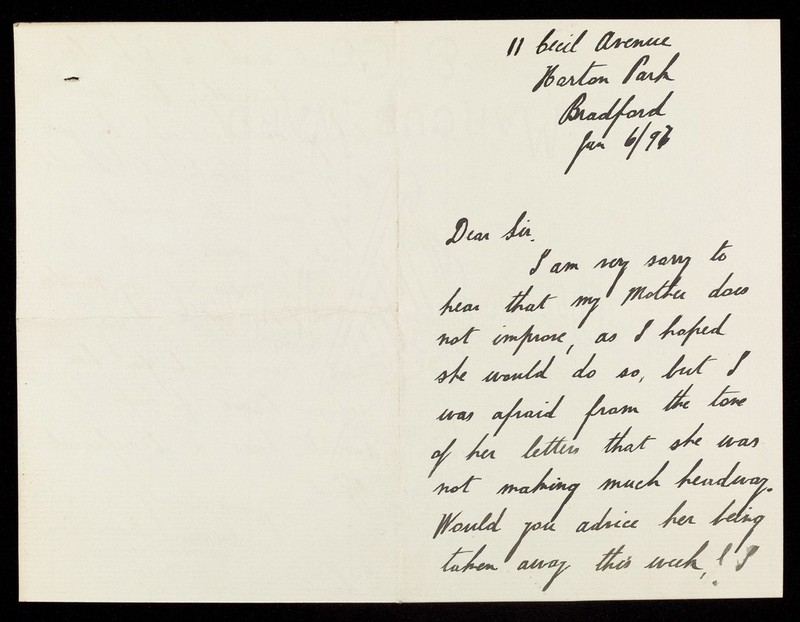 11 Cecil Avenue
Horton Park
Bradford
Jan 6/93
Dear Sir.
I am very sorry to
hear that my Mother does
not improve, as I hoped
she would do so, but I
was afraid from the tone
of her letters that she was
not making much headway.
Would you advice her being
taken away this week,! I